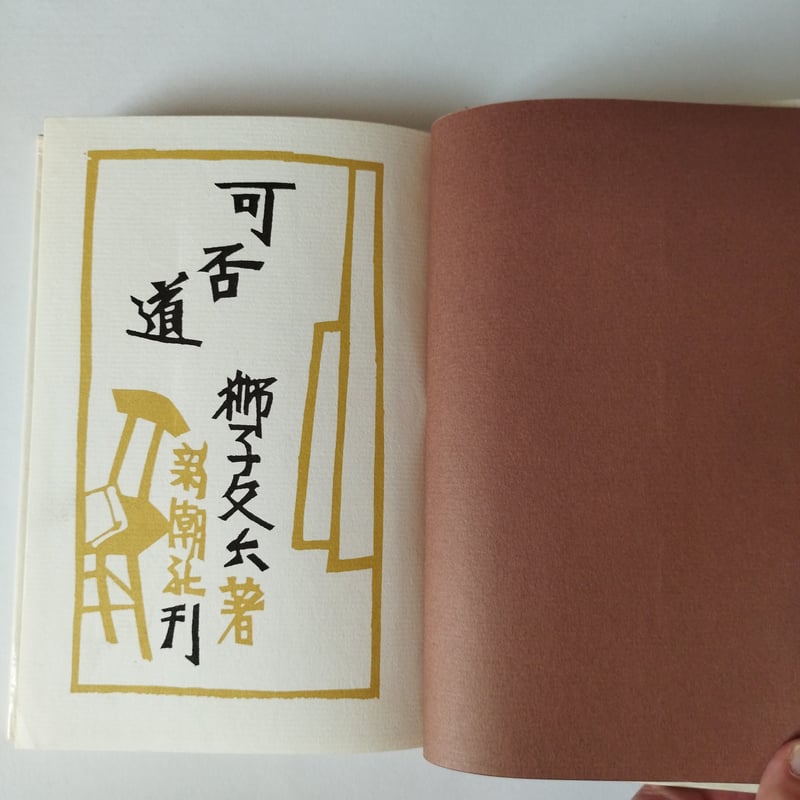 可否道
獅子文六著
新潮社刊